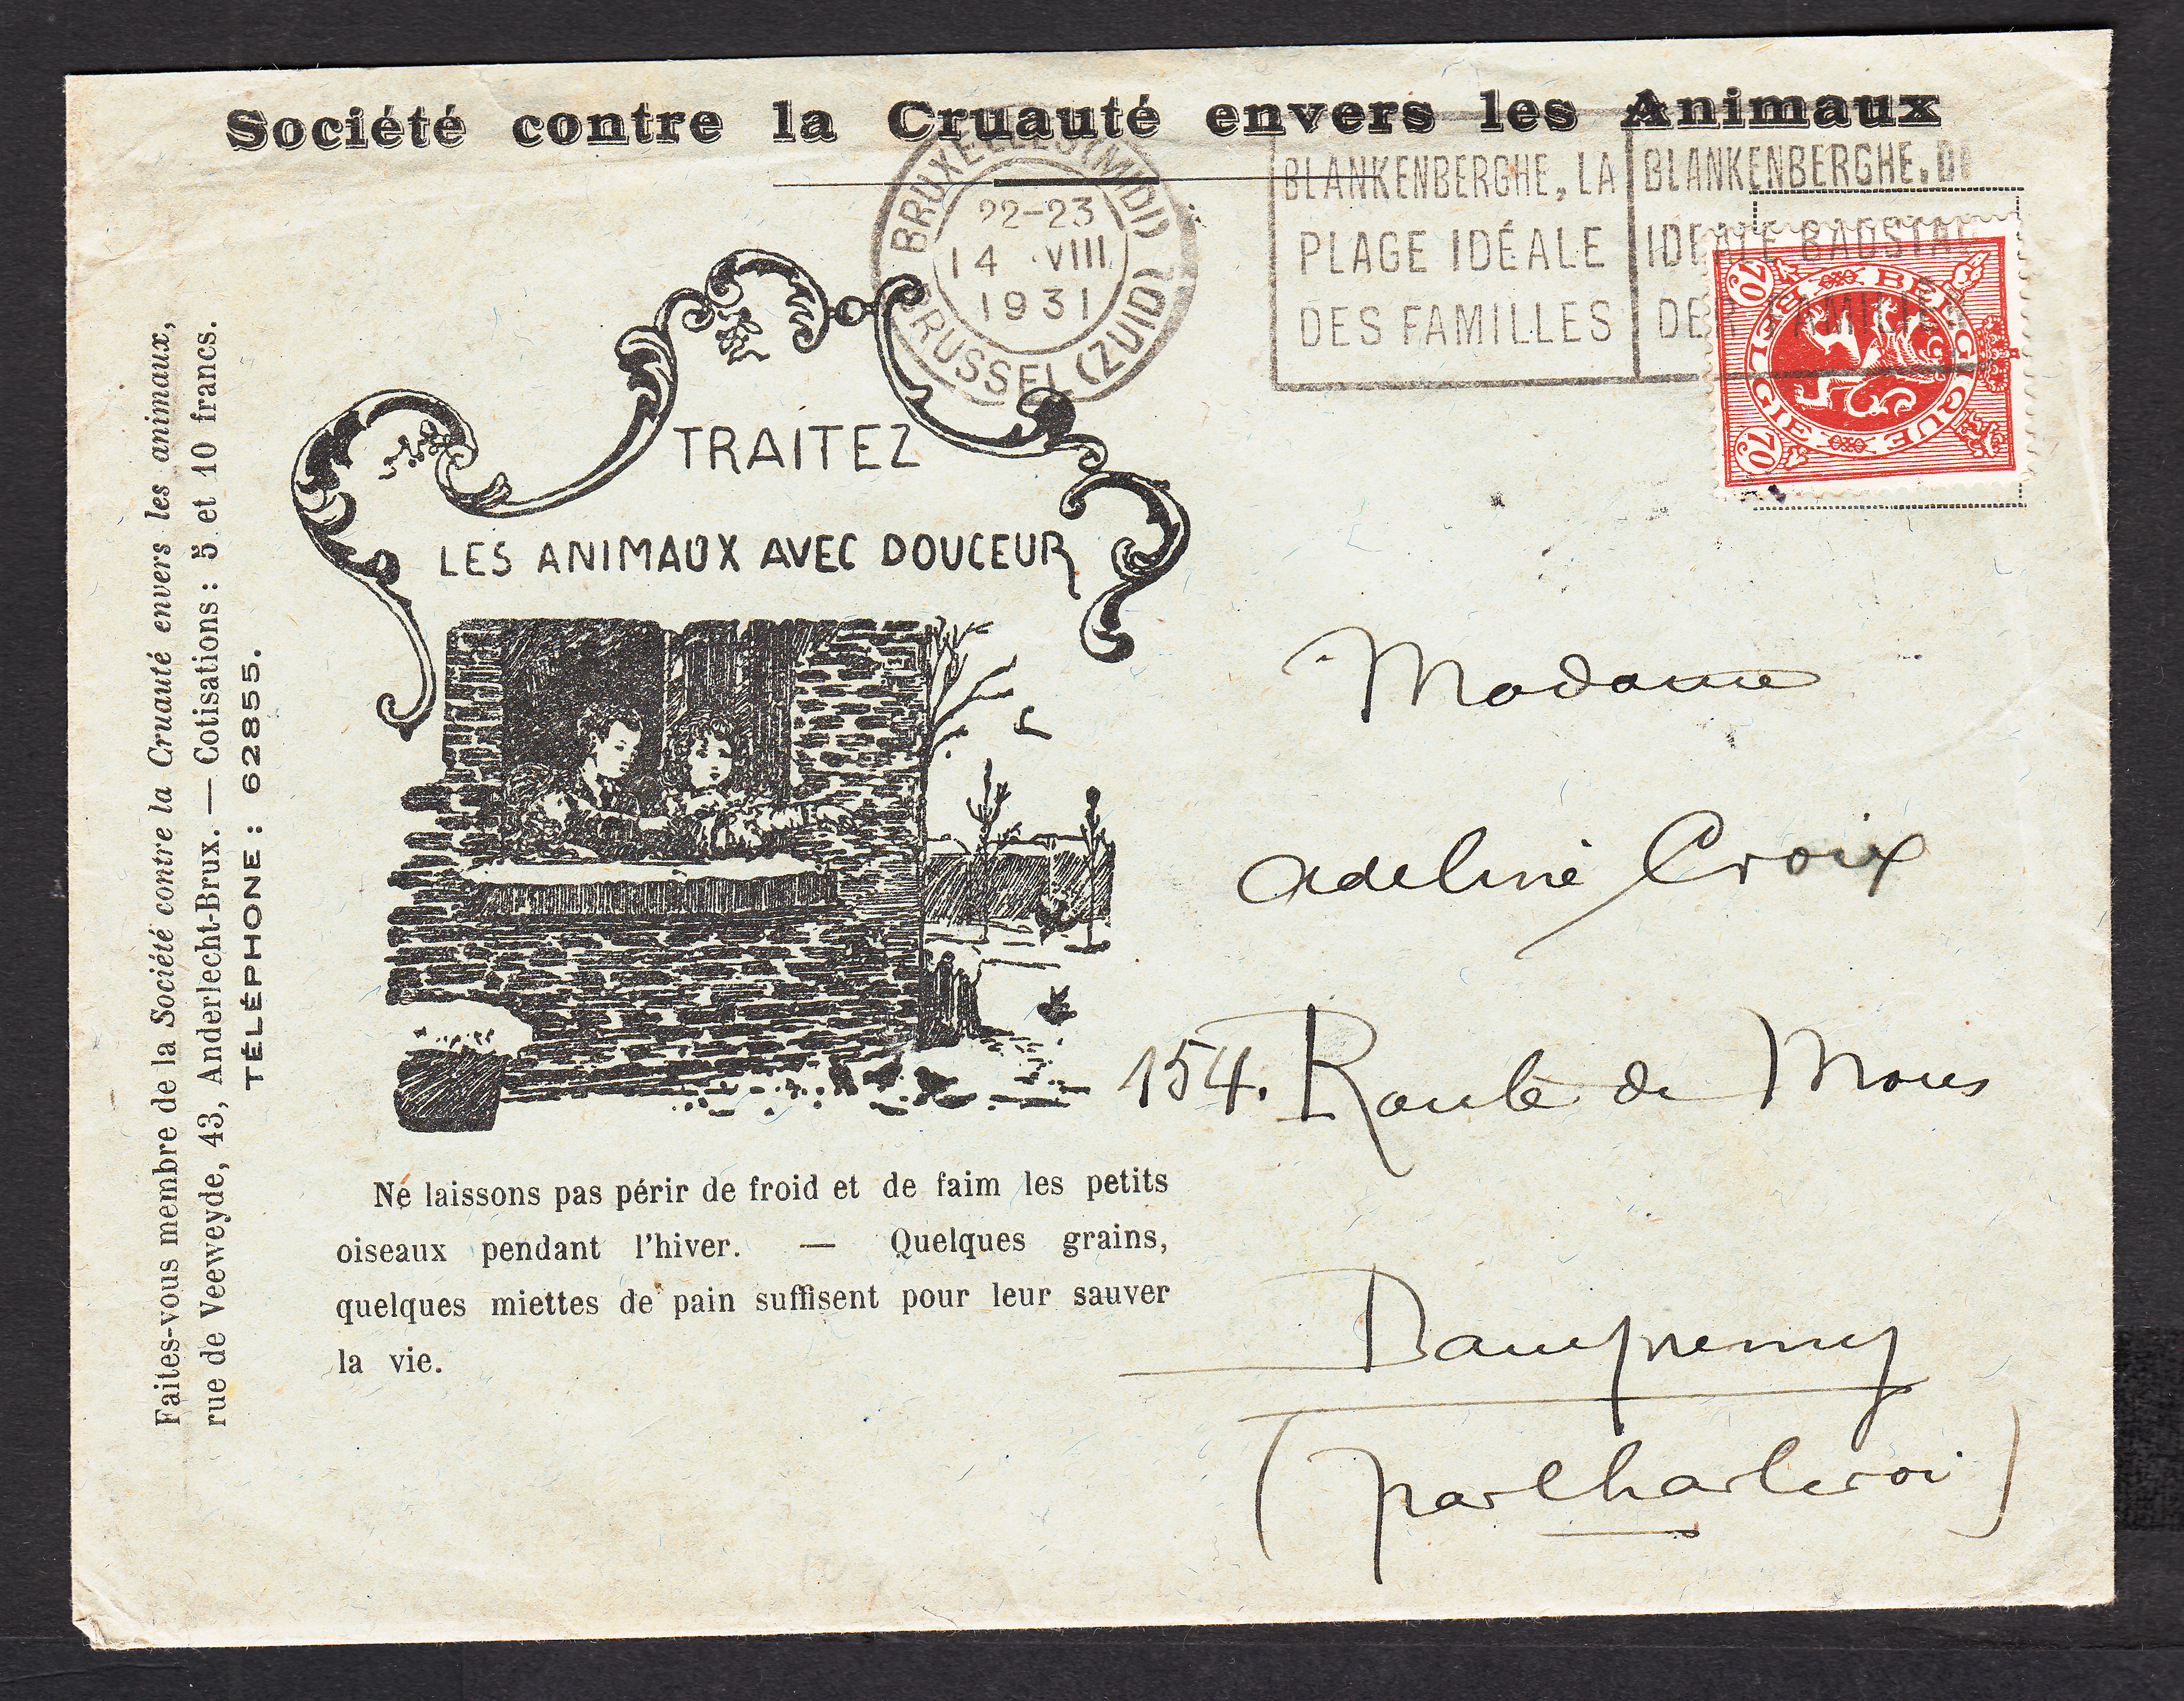 Société contre la Cruauté envers les Animaux
BRUXELLES (MIDI)
22-23
14 VIII
1931
BRUSSEL (ZUID)
BLANKENBERGHE, LA
PLAGE IDÉALE
DES FAMILLES
BLANKENBERGHE, DE
IDEALE BADSTAD
DER FAMILIËN
BELGIQUE
BELGIE
70
70
TRAITEZ
LES ANIMAUX AVEC DOUCEUR
Faites-vous membre de la Société contre la Cruauté envers les animaux,
rue de Veeweyde, 43, Anderlecht-Brux. — Cotisations : 5 et 10 francs.
TÉLÉPHONE : 62855.
Ne laissons pas périr de froid et de faim les petits
oiseaux pendant l'hiver. — Quelques grains,
quelques miettes de pain suffisent pour leur sauver
la vie.
Madame
Adeline Croix
154. Route de Mons
Dampremy
(par Charleroi)